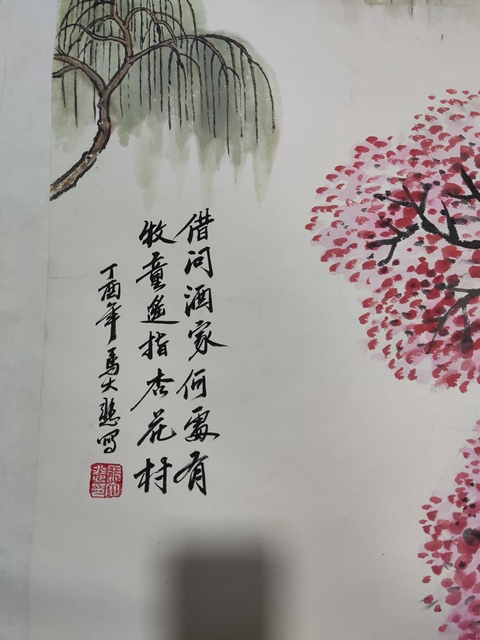 借问酒家何处有
牧童遥指杏花村
丁酉年马大悲写